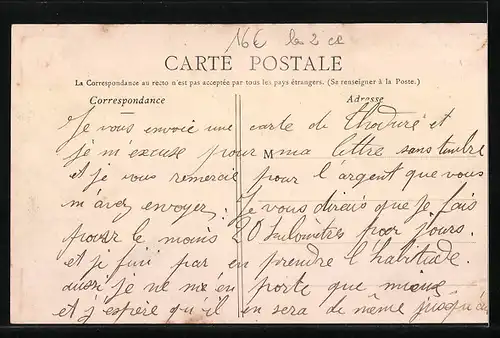 16€ les 2 ce
CARTE POSTALE
La Correspondance au recto n'est pas acceptée par tous les pays étrangers. (Se renseigner à la Poste.)
Correspondance
Adresse
Je vous envoie une carte de et
je m'excuse pour ma lettre sans timbre
M
et je vous remercie pour l'argent que vous
m'avez envoyer. Je vous dirais que je fais
le moins 20 kilomètres par jours.
et je fini par en prendre l'habitude.
aussi je ne m'en porte que mieux
et j'espère qu'il en sera de même jusqu'au